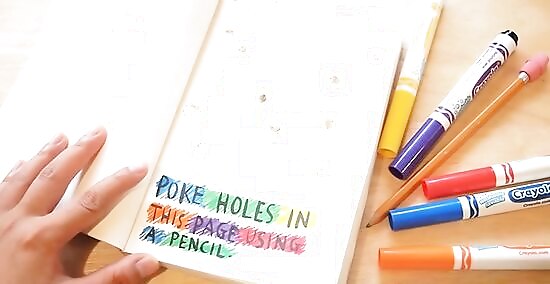 POKE HOLES IN
THIS PAGE USING
A PENCIL.
Crayola
Crayola